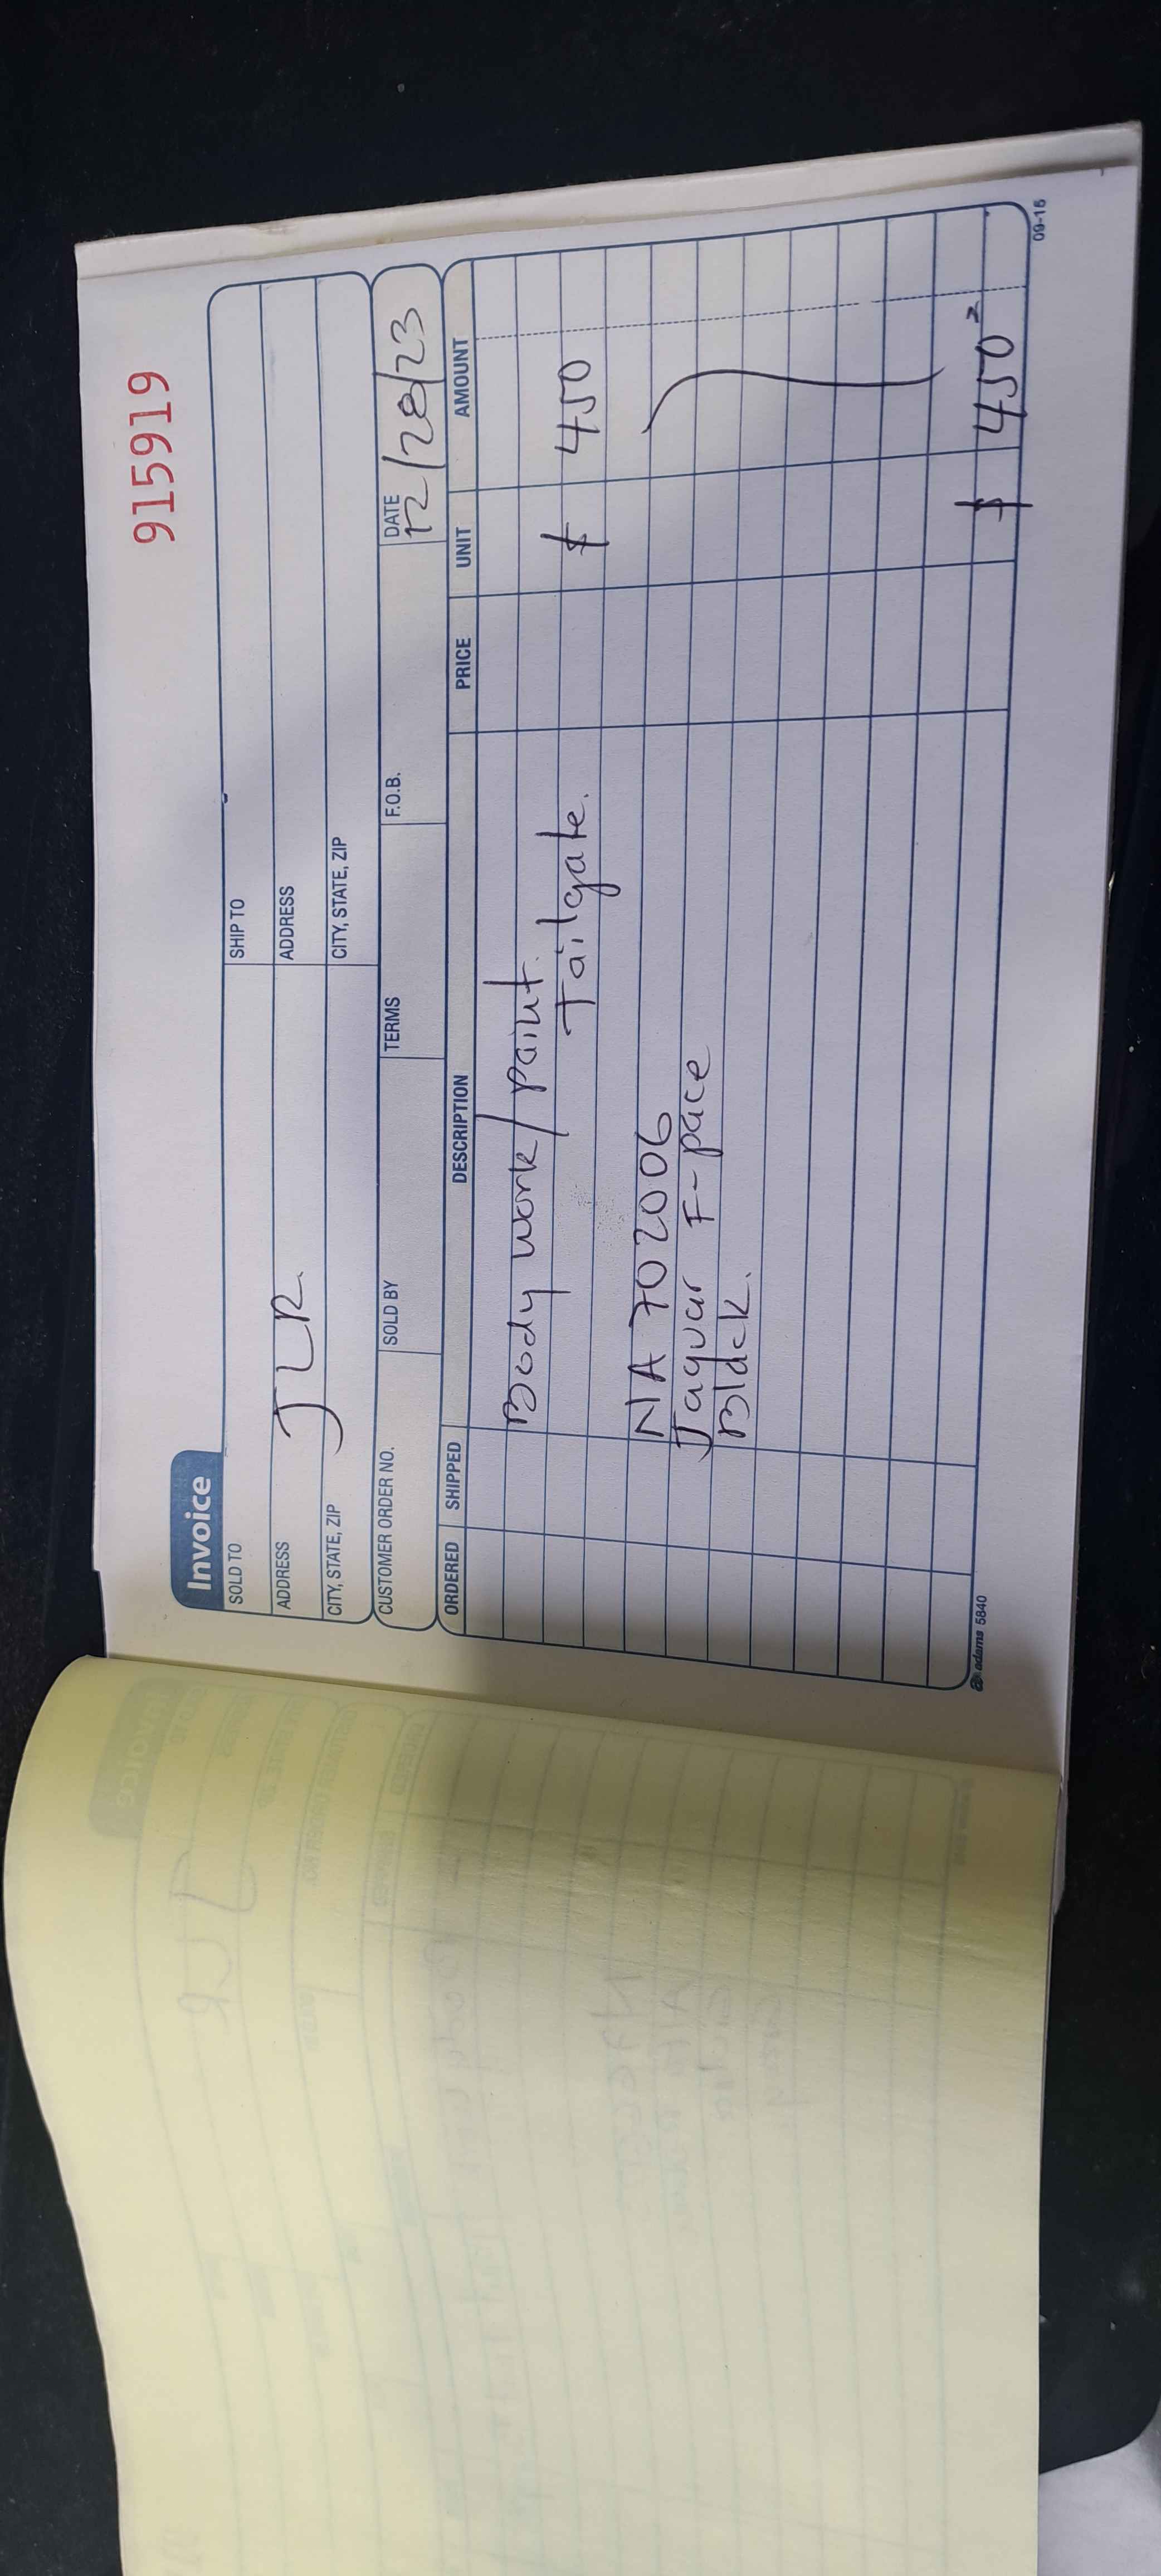 915919
Invoice
SOLD TO
SHIP TO
ADDRESS
JLR.
ADDRESS
CITY, STATE, ZIP
CITY, STATE, ZIP
CUSTOMER ORDER NO. SOLD BY TERMS F.O.B. DATE
12/28/23
ORDERED SHIPPED DESCRIPTION PRICE UNIT AMOUNT
Body work/paint.
Tailgate. $ 450
NA 702006
Jaguar F-pace
Black.
$ 450
adams 5840
09-15